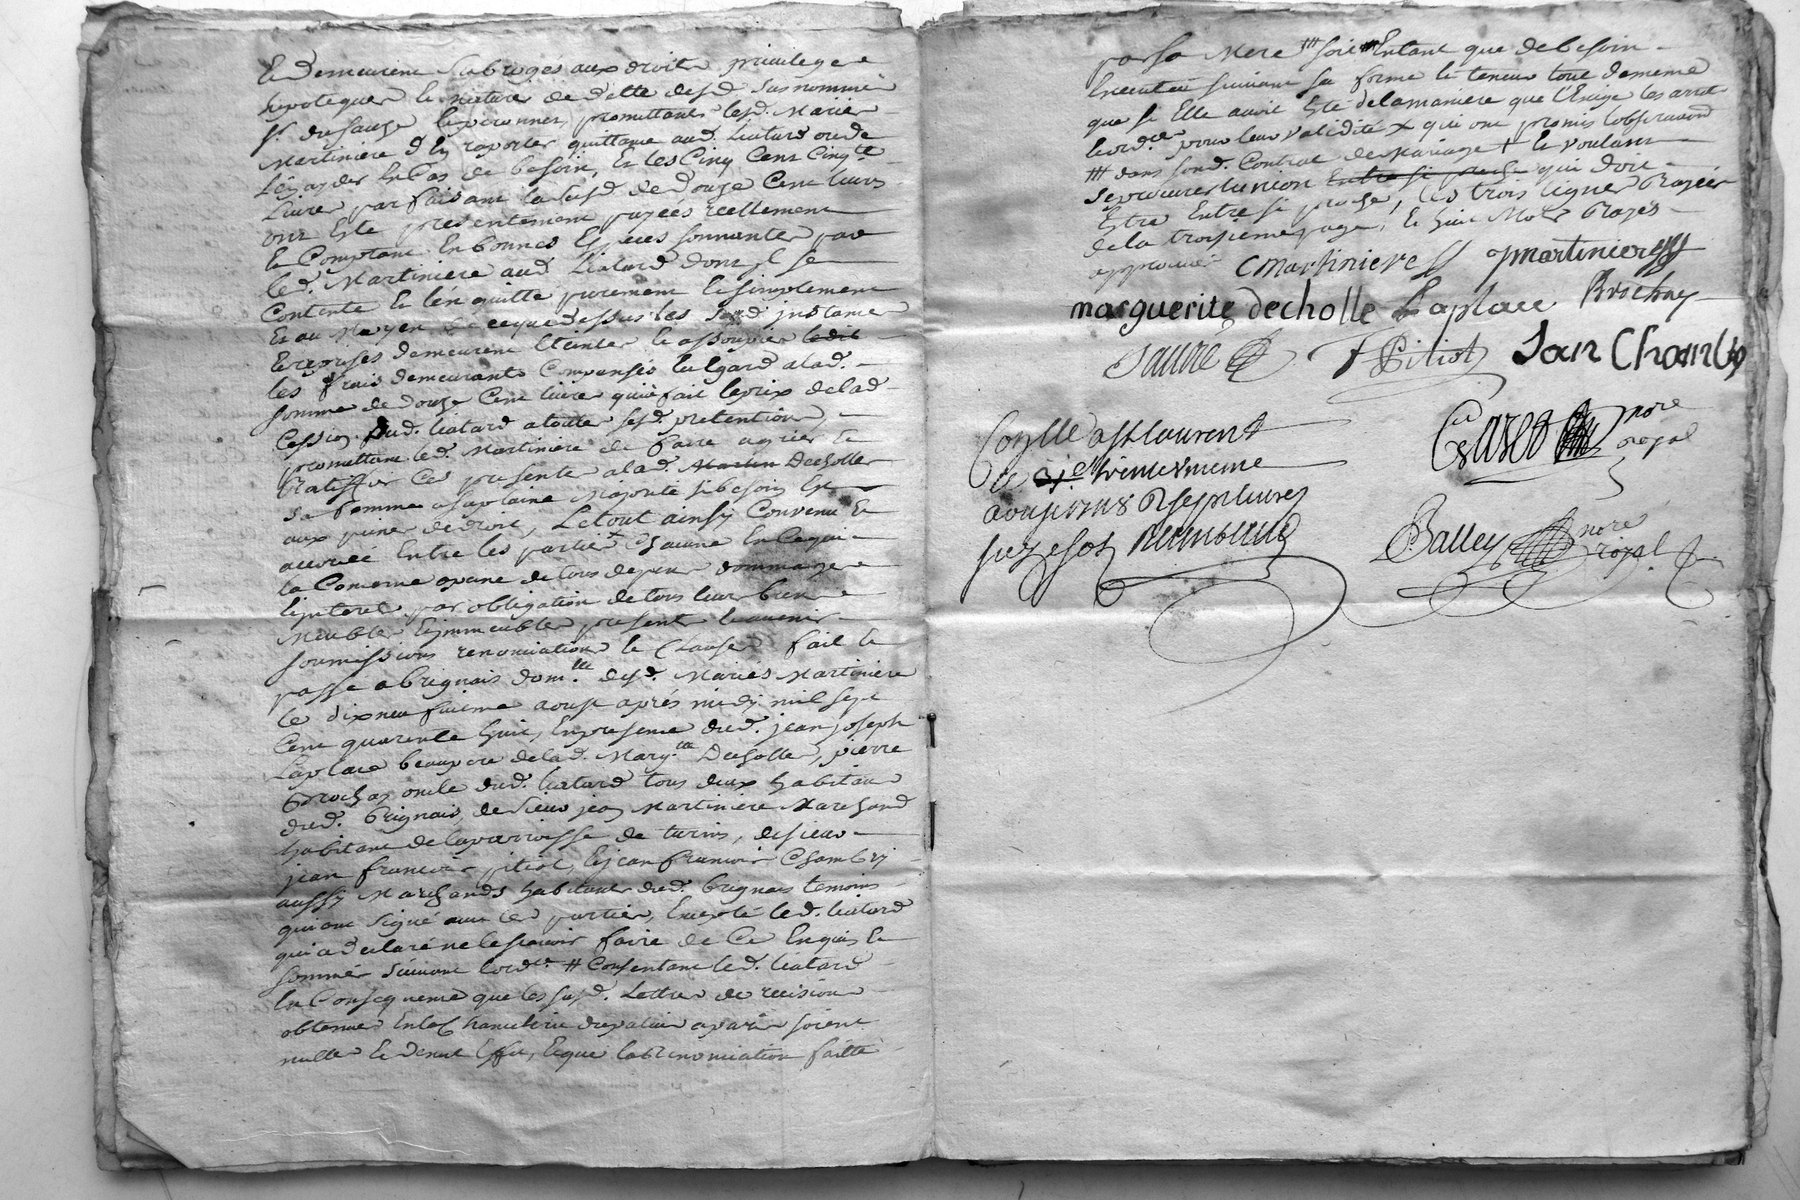 Et Demeurent Subroges aux droits privilege et
hipotequer et nature de dette desd. Susnommé
Sr. du Sauge Lepronner, promettants lesd. Mariés
Martiniere d'En raporter quittance aud. Liatard ou de
Les aider En Cas de besoin, Et les Cinq Cent Cinqte.
Livres parfaisant la susd. de Douze Cent livres
ont Esté presentement payées réellement
et Comptant En bonnes Especes sonnantes par
led. Martiniere aud. Liatard dont il se
Contente et l'en quitte purement et simplement
Et au Moyen de ce que Dessus les Susd. instances
Et reprises demeurent Eteintes et assoupies
les frais demeurants Compensés Esgard a lad.
Somme de Douze Cent livres qui fait le prix de lad.
Cession dud. liatard a toutes sesd. pretentions,
promettant led. Martiniere de faire agréer et
Ratiffier Ces presente a lad. Decholle
sa femme a sa plaine Majorité si besoin Est
aux peines de droit, Le tout ainsy Convenu et
accordé Entre les parties Chacune En Ce qui
la Concerne a peine de tous depens dommages
et interet par obligation de tous leurs biens
Meubles et immeubles presents et avenir
soumissions renonciations et Clauses fait et
passé a brignais domlle. desd. Mariés Martiniere
le dix neufvieme aoust après midy mil sept
Cent quarente huit, En presence dud. jean joseph
Laplace beaupere de lad. Margtte. Decholle, pierre
Brochay oncle dud. liatard tous deux habitans
dud. brignais, de sieur jean Martiniere Marchand
habitant de la parroisse de turins, de sieur
jean francois pitiot, et jean francois Chambry
aussy Marchands habitants dud. brignais temoins
qui ont signé avec les parties, Excepté led. liatard
qui a declaré ne le scavoir faire de Ce Enquis et
sommés suivant l'ordce. # Consentant led. liatard
En Consequence que les susd. Lettres de recision
obtenues En la Chancelerie du palais a paris soient
nulles et de nul Effet, Et que la renonciation faitte
par sa Mere ### soit Entant que de besoin
Executée suivant sa forme et teneur tout de meme
que si Elle avoit Esté de la maniere que l'Exige les arrets
et ordces. pour leur validité X qui ont promis l'observation
### dans sond. Contrat de Mariage + et voulant
se procurer l'union Entre si proche qui doit
Estre Entre si proches, les trois lignes Rayées
de la troisieme page, et huit Mots Rayés
approuvés CMartiniere JMartiniere
marguerite decholle Laplace Brochay
Sauvre JF Pitiot Jan Chanbry
Conlle a St Laurent
le trente & unieme
aoust 1748 R sept livres
Reymond
Garet nore
royal
Balley nore
royal